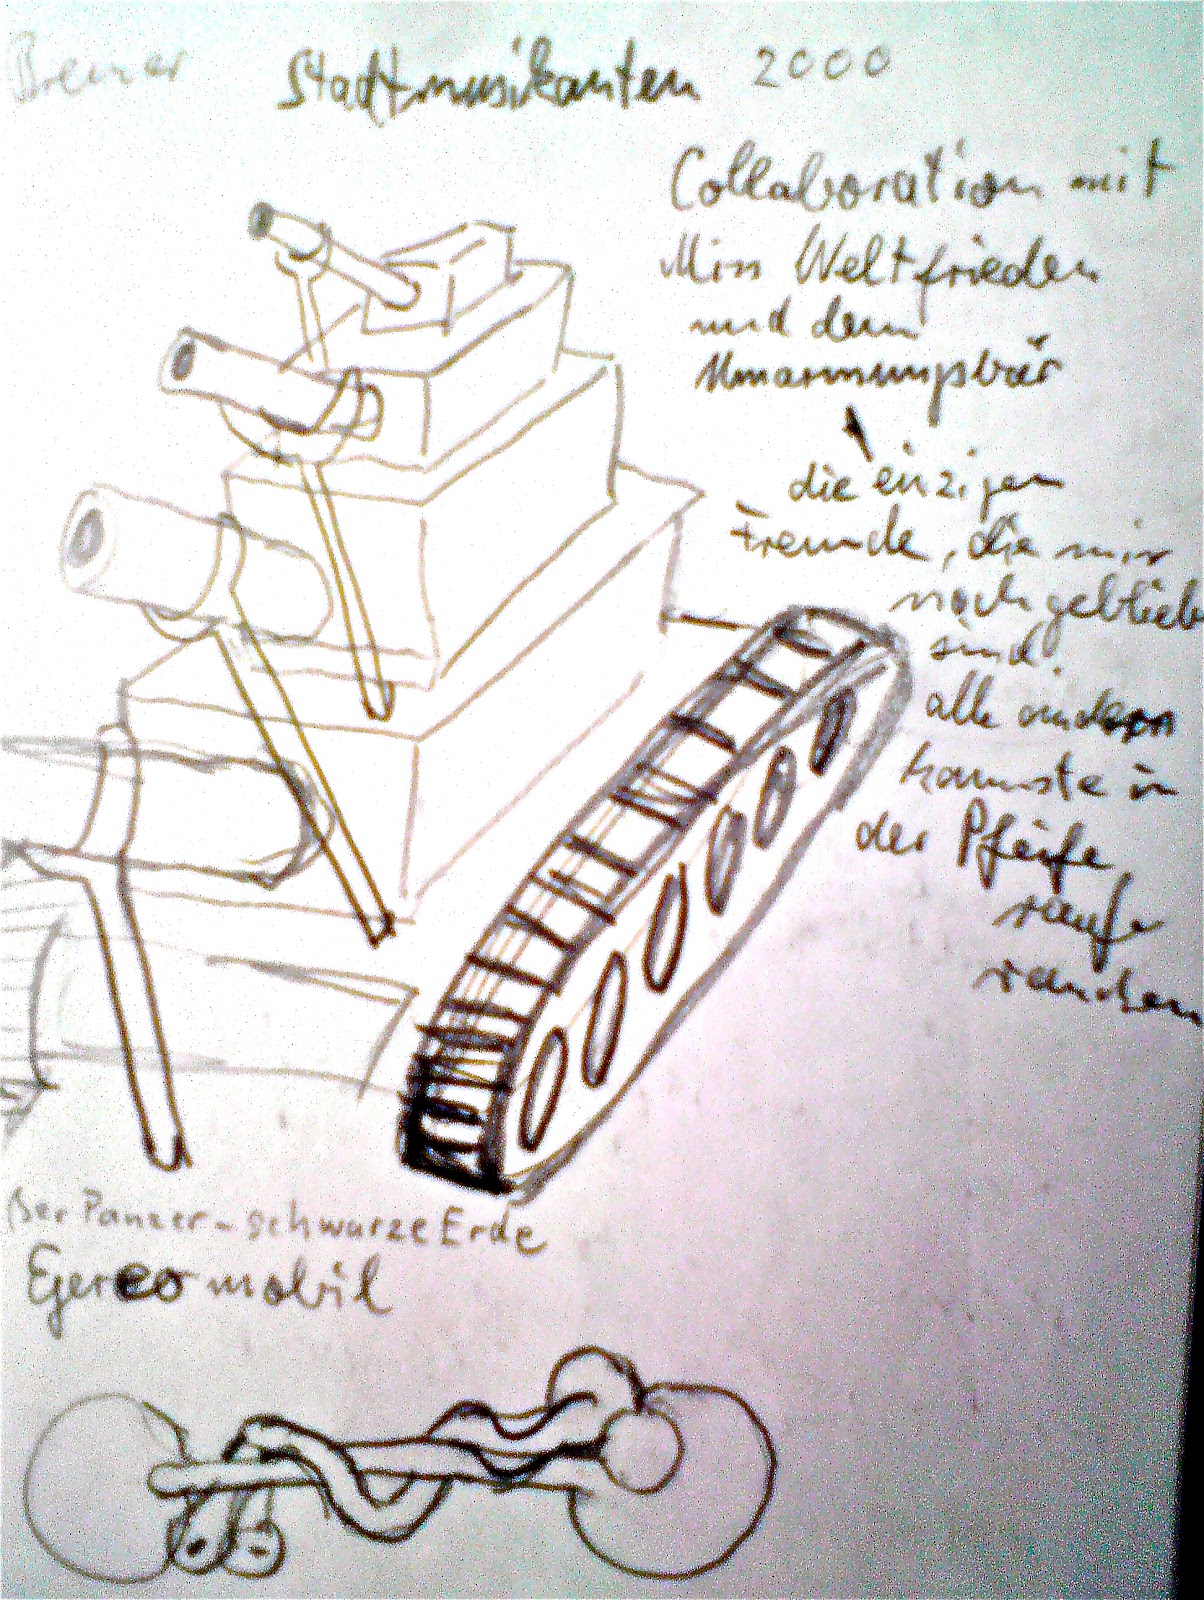 Bremer Stadtmusikanten 2000
Collaboration mit
Miss Weltfrieden
und dem
Umarmungsbär
die einzigen
Freunde, die mir
noch geblieb
sind.
alle andern
kannste in
der Pfeife
rauchen
Der Panzer - schwarze Erde
mobil